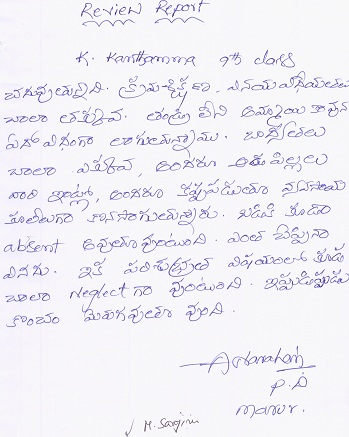 Review Report
K. Kanthamma 9th class
చదువుతున్నది. క్రమశిక్షణ, వినయ విధేయతలు
చాలా తక్కువ. తండ్రి లేని అమ్మాయి కావున
ఏదో విధంగా లాగుతున్నాము. బాధ్యతలు
చాలా ఎక్కువ, అందరూ ఆడ పిల్లలు
వారి ఇంట్లో, అందరూ కష్టపడుతూ వ్యవసాయ
కూలీలుగా కొనసాగుతున్నారు. బడికి కూడా
absent అవుతూ వుంటుంది. ఎంత చెప్పినా
వినదు. ఇక పరిశుభ్రత విషయంలో కూడా
చాలా neglect గా వుంటుంది. ఇప్పుడిప్పుడు
కొంచం మెరుగవుతూ వుంది.
P.D
M. Sarojini